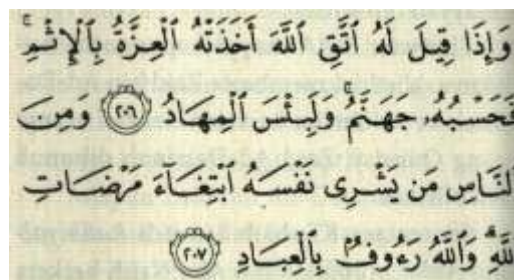 وَإِذَا قِيلَ لَهُ ٱتَّقِ ٱللَّهَ أَخَذَتْهُ ٱلْعِزَّةُ بِٱلْإِثْمِ ۚ
فَحَسْبُهُۥ جَهَنَّمُ ۚ وَلَبِئْسَ ٱلْمِهَادُ ٢٠٦ وَمِنَ
ٱلنَّاسِ مَن يَشْرِى نَفْسَهُ ٱبْتِغَآءَ مَرْضَاتِ
ٱللَّهِ ۗ وَٱللَّهُ رَءُوفٌۢ بِٱلْعِبَادِ ٢٠٧